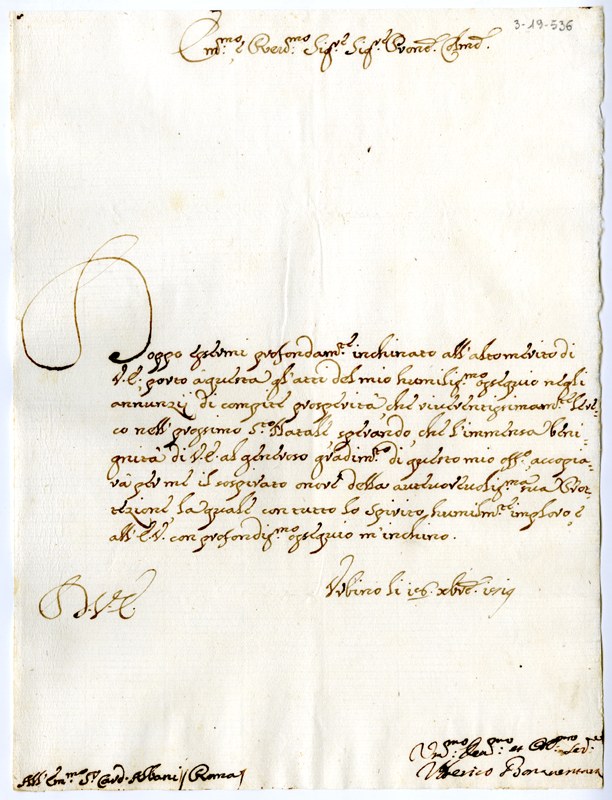 3-19-536
Em.mo e Rever.mo Sig.re Sig.re Pron. Colmo.
Doppo essermi profondam.te inchinato all'alto merito di
V.E. porto à questa gl'atti del mio humilis.mo ossequio negli
annunzij di compite prosperità che riverentissimam.te le re-
co nell'prossimo S.to Natale sperando, che l'immensa beni-
gnità di V.E. al generoso gradim.to di questo mio off.o accopia-
rà per me il sospirato onore della autorevolis.ma sua Pro-
tezione la quale con tutto lo spirito humilm.te imploro, e
all'E.V. con profondis.mo ossequio m'inchino.
D. V.ra E.
Urbino li 16. xbre. 1719
Um.mo Dev.mo et Obl.mo Ser.re
All' Em.mo S.r Card. Albani / Roma /
Uderico Bonaventura